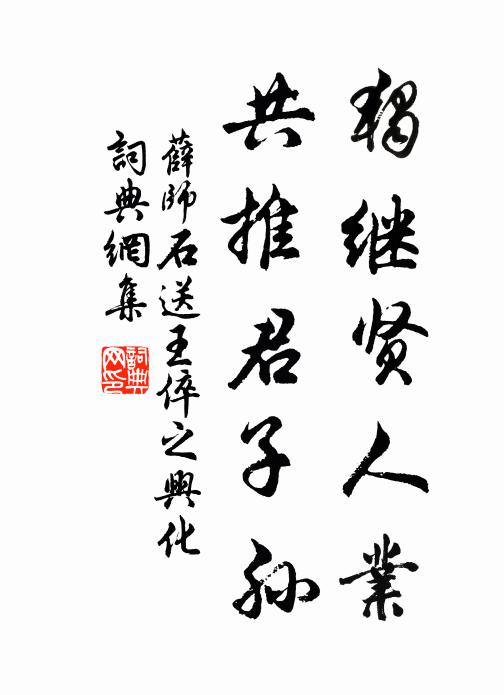 独继贤人業
共推君子孙
薛師石送王倅之興化
詞典網集
詞典网印